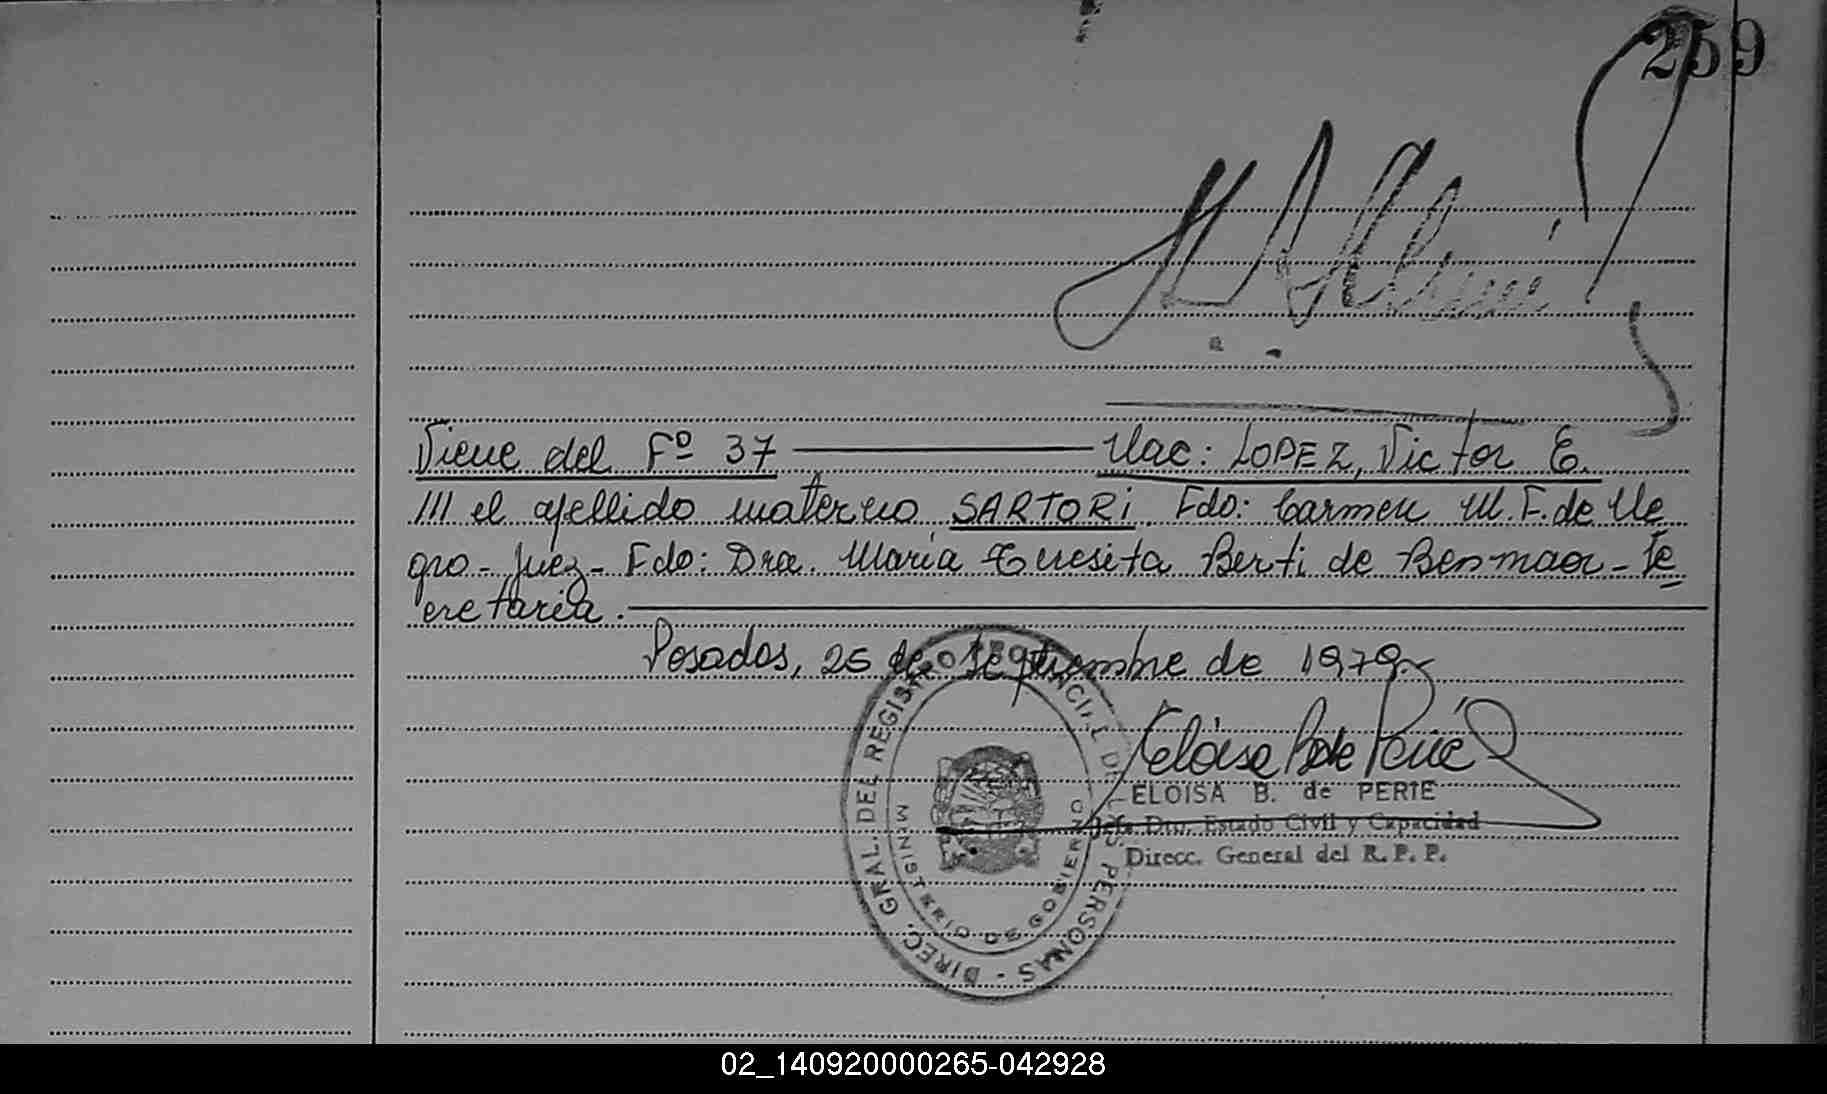 259
Viene del Fº 37 Nac: LOPEZ, Victor E.
/// el apellido materno SARTORI. Fdo: Carmen M. F. de Ne
gro - Juez - Fdo: Dra. María Teresita Berti de Benmaor - Se
cretaria.
Posadas, 25 de Septiembre de 1979.
Eloisa B de Perié
ELOISA B. de PERIE
Jefe Dto. Estado Civil y Capacidad
Direcc. General del R. P. P.
DIREC. GRAL. DEL REGISTRO PROVINCIAL DE LAS PERSONAS
MINISTERIO DE GOBIERNO
02_140920000265-042928